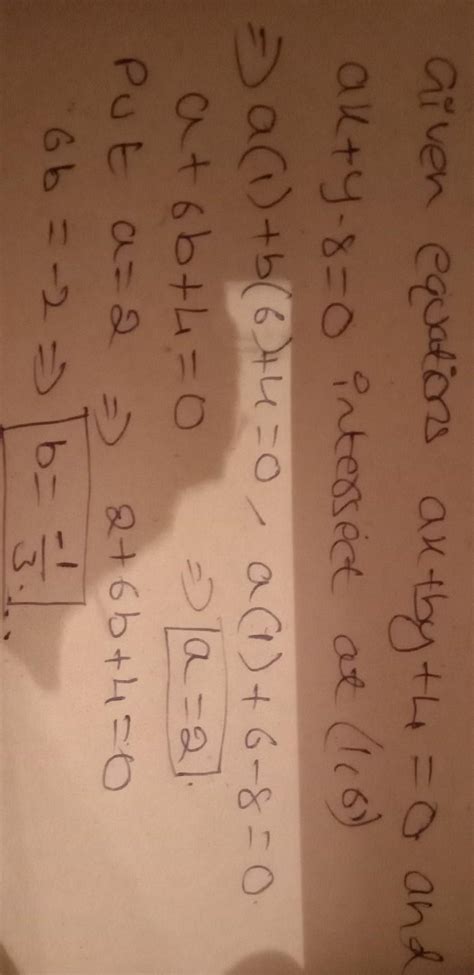 Given equations ax+by+4=0 and
ax+y-8=0 intersect at (1,6)
⇒ a(1)+b(6)+4=0, a(1)+6-8=0.
a+6b+4=0 ⇒ a=2.
Put a=2 ⇒ 2+6b+4=0
6b=-2 ⇒ b=-1/3.